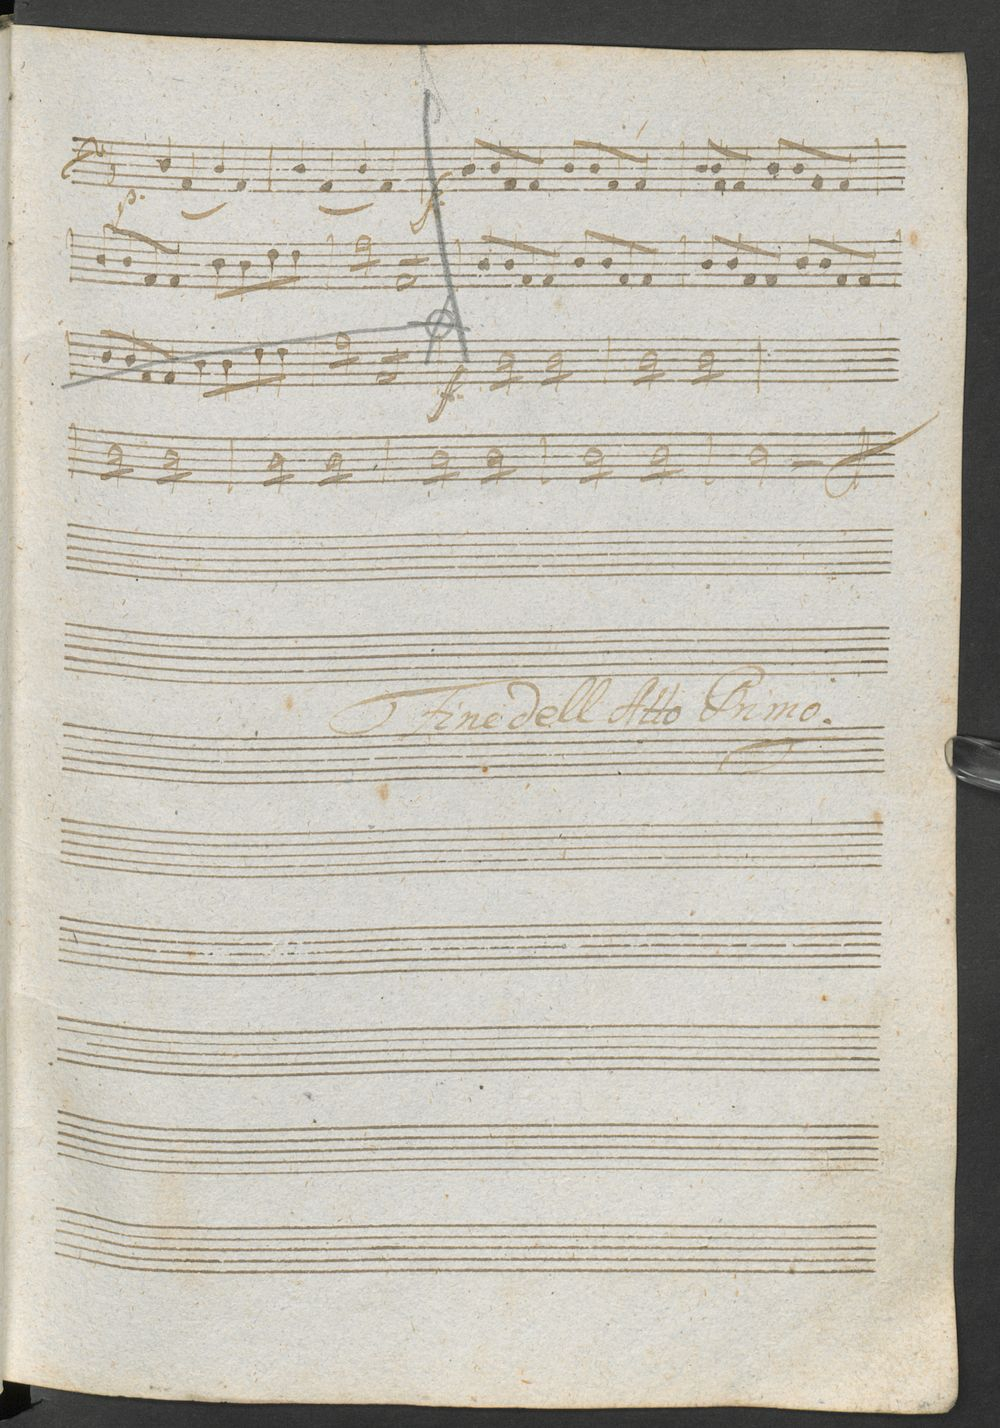 p.
f.
f.
Fine dell Atto Primo.